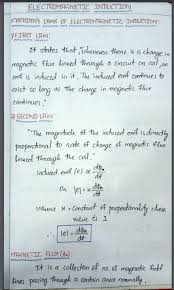 ELECTROMAGNETIC INDUCTION
FARADAY'S LAWS OF ELECTROMAGNETIC INDUCTION:
1) FIRST LAW:
It states that, "whenever there is a change in
magnetic flux linked through a circuit or coil, an
emf is induced in it. The induced emf continues to
exist so long as the change in magnetic flux
continues."
2) SECOND LAW
"The magnitude of the induced emf is directly
proportional to rate of change of magnetic flux
linked through the coil."
induced emf (e) ∝ dφm/dt
Or |e| = K dφm/dt
Where K = constant of proportionality whose
value is 1
∴ |e| = dφm/dt
MAGNETIC FLUX (φm):
It is a collection of no. of magnetic field
lines passing through a certain area normally.